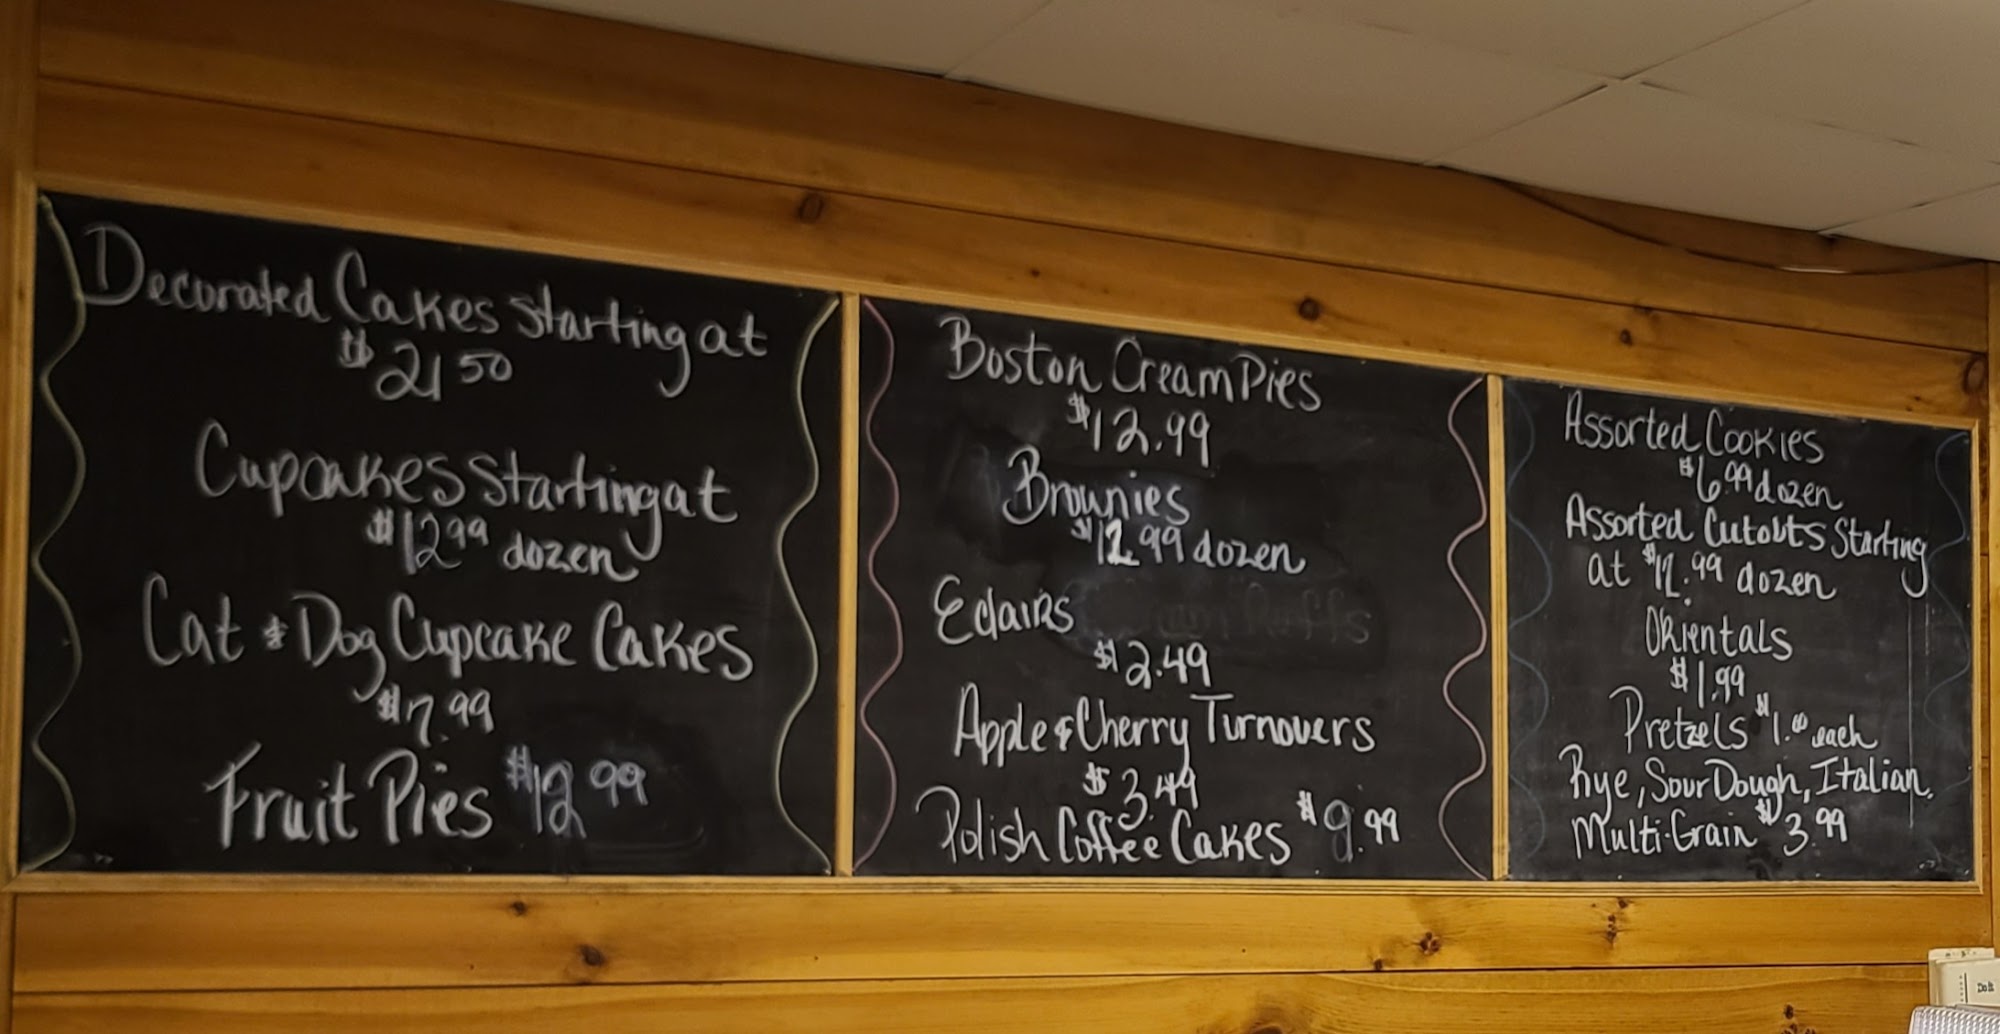 Decorated Cakes Starting at
$21 50
Cupcakes Starting at
$12 99 dozen
Cat & Dog Cupcake Cakes
$7.99
Fruit Pies $12 99
Boston Cream Pies
$12.99
Brownies
$12.99 dozen
Eclairs
$2.49
Apple & Cherry Turnovers
$3.49
Polish Coffee Cakes $9.99
Assorted Cookies
$6.99 dozen
Assorted Cutouts Starting
at $12.99 dozen
Orientals
$1.99
Pretzels $1.00 each
Rye, Sour Dough, Italian,
Multi-Grain $3.99